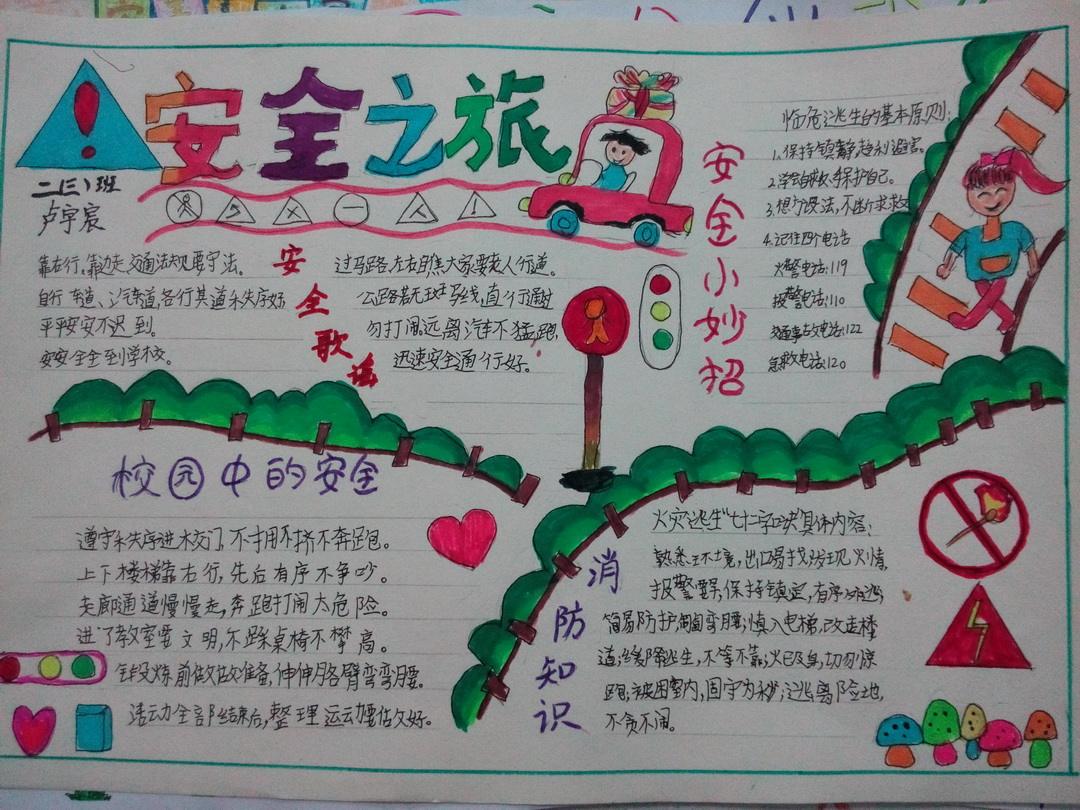 安全之旅
二(三)班
卢宇宸
安全歌谣
靠右行,靠边走,交通法规要守法。
自行车道、汽车道,各行其道永失序好
平平安安不迟到。
安安全全到学校。
过马路,左右瞧,大家要走人行道。
公路若无斑马线,直行通过
勿打闹远离汽车不猛跑,
迅速安全通行好。
安全小妙招
临危逃生的基本原则:
1.保持镇静,趋利避害。
2.学会自救,保护自己。
3.想方设法,不断求救
4.记住四个电话
火警电话:119
报警电话:110
交通事故电话:122
急救电话:120
校园中的安全
遵守秩序进校门,不拥不挤不奔跑。
上下楼梯靠右行,先后有序不争吵。
走廊通道慢慢走,奔跑打闹太危险。
进了教室要文明,不踩桌椅不攀高。
锻炼前做做准备,伸伸胳臂弯弯腰。
活动全部结束后,整理运动要做好。
消防知识
火灾逃生"七十二字口诀"具体内容:
熟悉环境,出口易找;发现火情,
报警要早,保持镇定,有序外逃;
简易防护,匍匐弯腰;慎入电梯,改走楼
道;缓降逃生,不等不靠;火已及身,切勿惊
跑;被困室内,固守为妙;逃离险地,
不贪不闹。